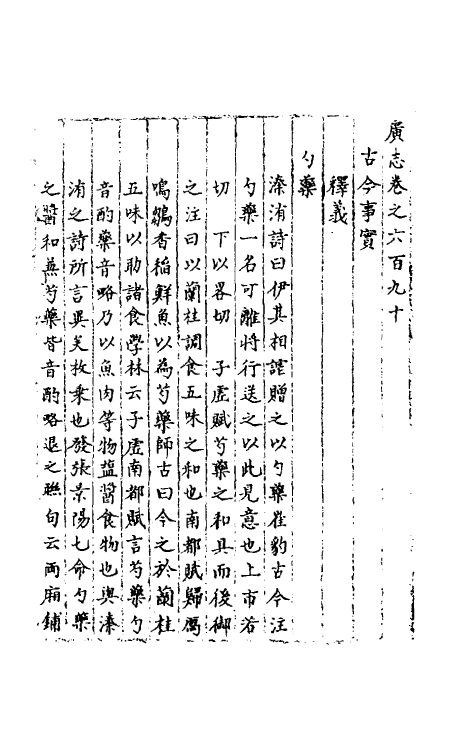 廣志卷之六百九十
古今事實
釋義
勺藥
溱洧詩曰伊其相謔贈之以勺藥崔豹古今注
勺藥一名可離將行送之以此見意也上市若
切　下以畧切　子虛賦芍藥之和具而後御
之注曰以蘭桂調食五味之和也南都賦歸鴈
鳴鵽香稻鮮魚以為芍藥師古曰今之於蘭桂
五味以助諸食學林云子虛南都賦言芍藥勺
音酌藥音略乃以魚肉等物塩醬食物也與溱
洧之詩所言異矣枚乗七發張景陽七命勺藥
之醬和𦎟芍藥皆音酌略退之聮句云兩廂鋪